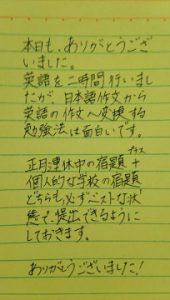 本日も、ありがとうござ
いました。
英語を二時間行いまし
たが、日本語作文から
英語の作文へ変換する
勉強法は面白いです。
プラス
正月連休中の宿題 +
個人的な学校の宿題
どちらも必ずベストな状
態で、提出できるように
しておきます。
ありがとうございました!